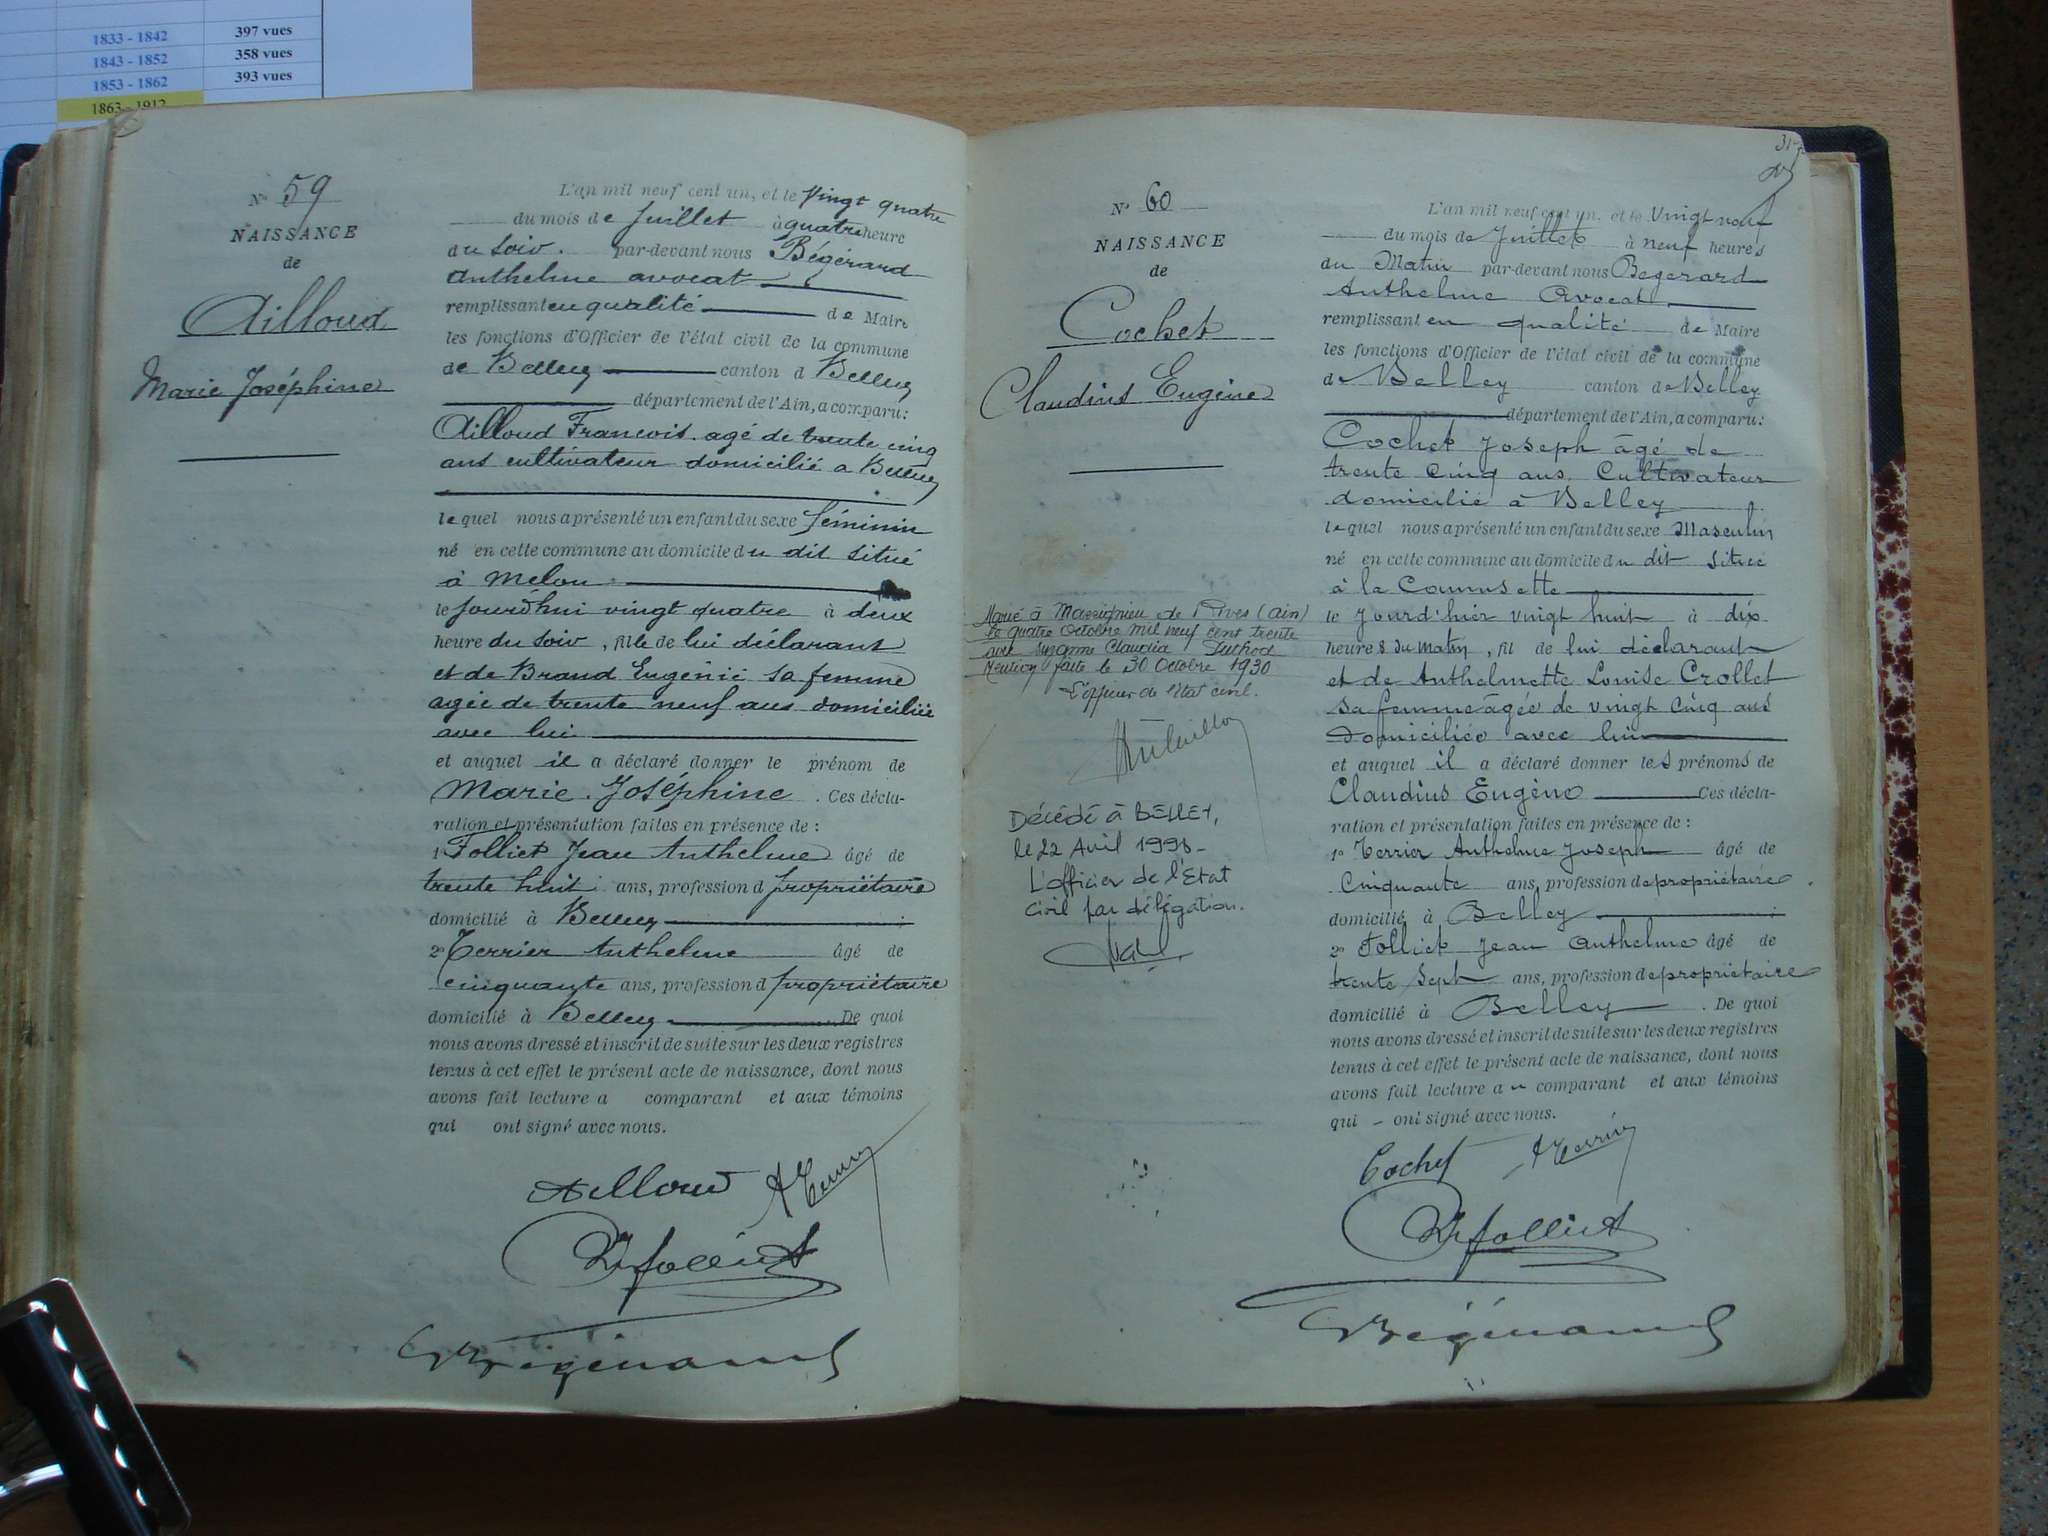 1833 - 1842 397 vues
1843 - 1852 358 vues
1853 - 1862 393 vues
1863 - 1912
N° 59
NAISSANCE
de
Ailloud
Marie Joséphine
L'an mil neuf cent un, et le Vingt quatre
du mois de Juillet à quatre heure
du soir. par-devant nous Bégérard
Anthelme avocat
remplissant en qualité de Maire
les fonctions d'Officier de l'état civil de la commune
de Belley canton d Belley
département de l'Ain, a comparu:
Ailloud Francois agé de trente cinq
ans cultivateur domicilié a Belley
lequel nous a présenté un enfant du sexe féminin
né en cette commune au domicile du dit situé
à Melon
le jourd'hui vingt quatre à deux
heure du soir, fille de lui déclarant
et de Braud Eugénie sa femme
agée de trente neuf ans domiciliée
avec lui
et auquel il a déclaré donner le prénom de
Marie Joséphine. Ces décla-
ration et présentation faites en présence de :
1° Folliet Jean Anthelme âgé de
trente huit ans, profession d propriétaire
domicilié à Belley ;
2° Terrier Anthelme âgé de
cinquante ans, profession d propriétaire
domicilié à Belley De quoi
nous avons dressé et inscrit de suite sur les deux registres
tenus à cet effet le présent acte de naissance, dont nous
avons fait lecture a comparant et aux témoins
qui ont signé avec nous.
Ailloud A Terrier
Folliet
Bégérard
31
N° 60
NAISSANCE
de
Cochet
Claudius Eugène
Marié à Massignieu de Rives (Ain)
le quatre Octobre mil neuf cent trente
avec Suzanne Claudia
Mention faite le 30 Octobre 1930
L'officier de l'état civil.
Décédé à BELLEY,
le 22 Avril 1998-
L'officier de l'Etat
Civil par délégation.
L'an mil neuf cent un. et le Vingt neuf
du mois de Juillet à neuf heures
du Matin par-devant nous Begerard
Anthelme Avocat
remplissant en qualité de Maire
les fonctions d'Officier de l'état civil de la commune
de Belley canton de Belley
département de l'Ain, a comparu:
Cochet Joseph âgé de
trente Cinq ans Cultivateur
domicilié à Belley
lequel nous a présenté un enfant du sexe Masculin
né en cette commune au domicile du dit Situé
à la Coumusette
le Jourd'hier vingt huit à dix
heures du Matin, fil de lui déclarant
et de Anthelmette Louise Crollet
sa femme âgée de vingt Cinq ans
Domiciliée avec lui
et auquel il a déclaré donner les prénoms de
Claudius Eugène Ces décla-
ration et présentation faites en présence de :
1° Terrier Anthelme Joseph âgé de
Cinquante ans, profession de propriétaire
domicilié à Belley ;
2° Folliet Jean Anthelme âgé de
trente Sept ans, profession de propriétaire
domicilié à Belley . De quoi
nous avons dressé et inscrit de suite sur les deux registres
tenus à cet effet le présent acte de naissance, dont nous
avons fait lecture au comparant et aux témoins
qui - ont signé avec nous.
Cochet A Terrier
Folliet
Bégérard